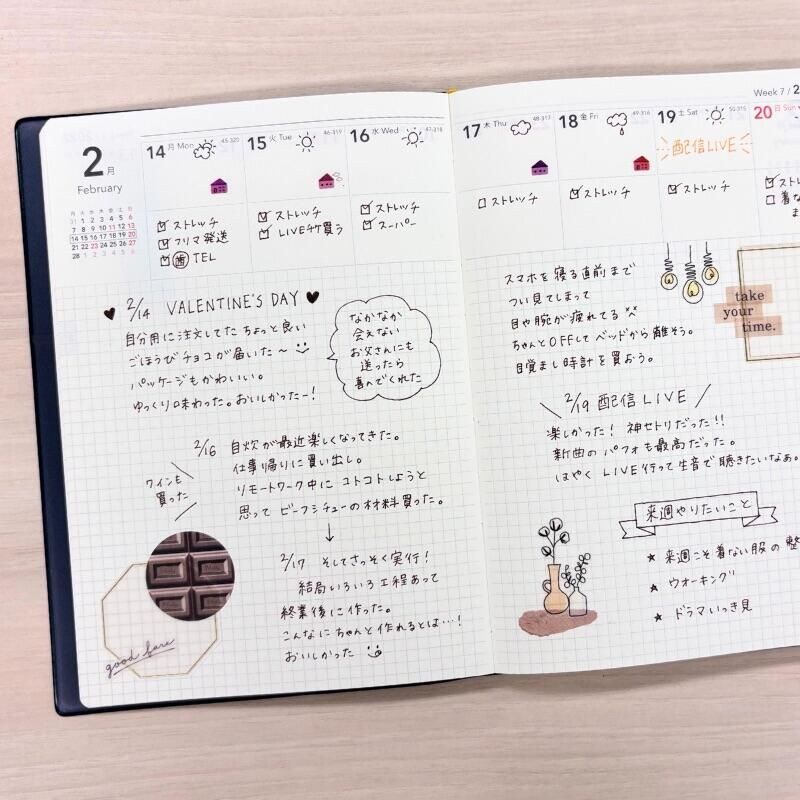 2月
February
月 火 水 木 金 土 日
31 1 2 3 4 5 6
7 8 9 10 11 12 13
14 15 16 17 18 19 20
21 22 23 24 25 26 27
28 1 2 3 4 5 6
14 月 Mon 45-320
☑ ストレッチ
☑ フリマ発送
☑ 歯 TEL
15 火 Tue 46-319
☑ ストレッチ
☑ LIVEチケ買う
16 水 Wed 47-318
☑ ストレッチ
☑ スーパー
♥ 2/14 VALENTINE'S DAY ♥
自分用に注文してた ちょっと良い
ごほうびチョコが届いた〜
パッケージもかわいい。
ゆっくり味わった。おいしかったー!
なかなか
会えない
お父さんにも
送ったら
喜んでくれた
2/16 自炊が最近楽しくなってきた。
仕事帰りに買い出し。
リモートワーク中に コトコトしようと
思って ビーフシチューの材料買った。
ワインも
買った
↓
2/17 そしてさっそく実行!
結局いろいろ工程あって
終業後に作った。
こんなにちゃんと作れるとは…!
おいしかった
good fare
Week 7 / 2
17 木 Thu 48-317
☐ ストレッチ
18 金 Fri 49-316
☑ ストレッチ
19 土 Sat 50-315
配信LIVE
☑ ストレッチ
20 日 Sun
☑ スト
☐ 着な
ま
スマホを寝る直前まで
つい見てしまって
目や腕が疲れてる
ちゃんとOFFしてベッドから離そう。
目覚まし時計を買おう。
take
your
time.
＼ 2/19 配信LIVE ／
楽しかった! 神セトリだった!!
新曲のパフォも最高だった。
はやく LIVE行って生音で聴きたいなあ。
来週やりたいこと
★ 来週こそ着ない服の整
★ ウォーキング
★ ドラマいっき見